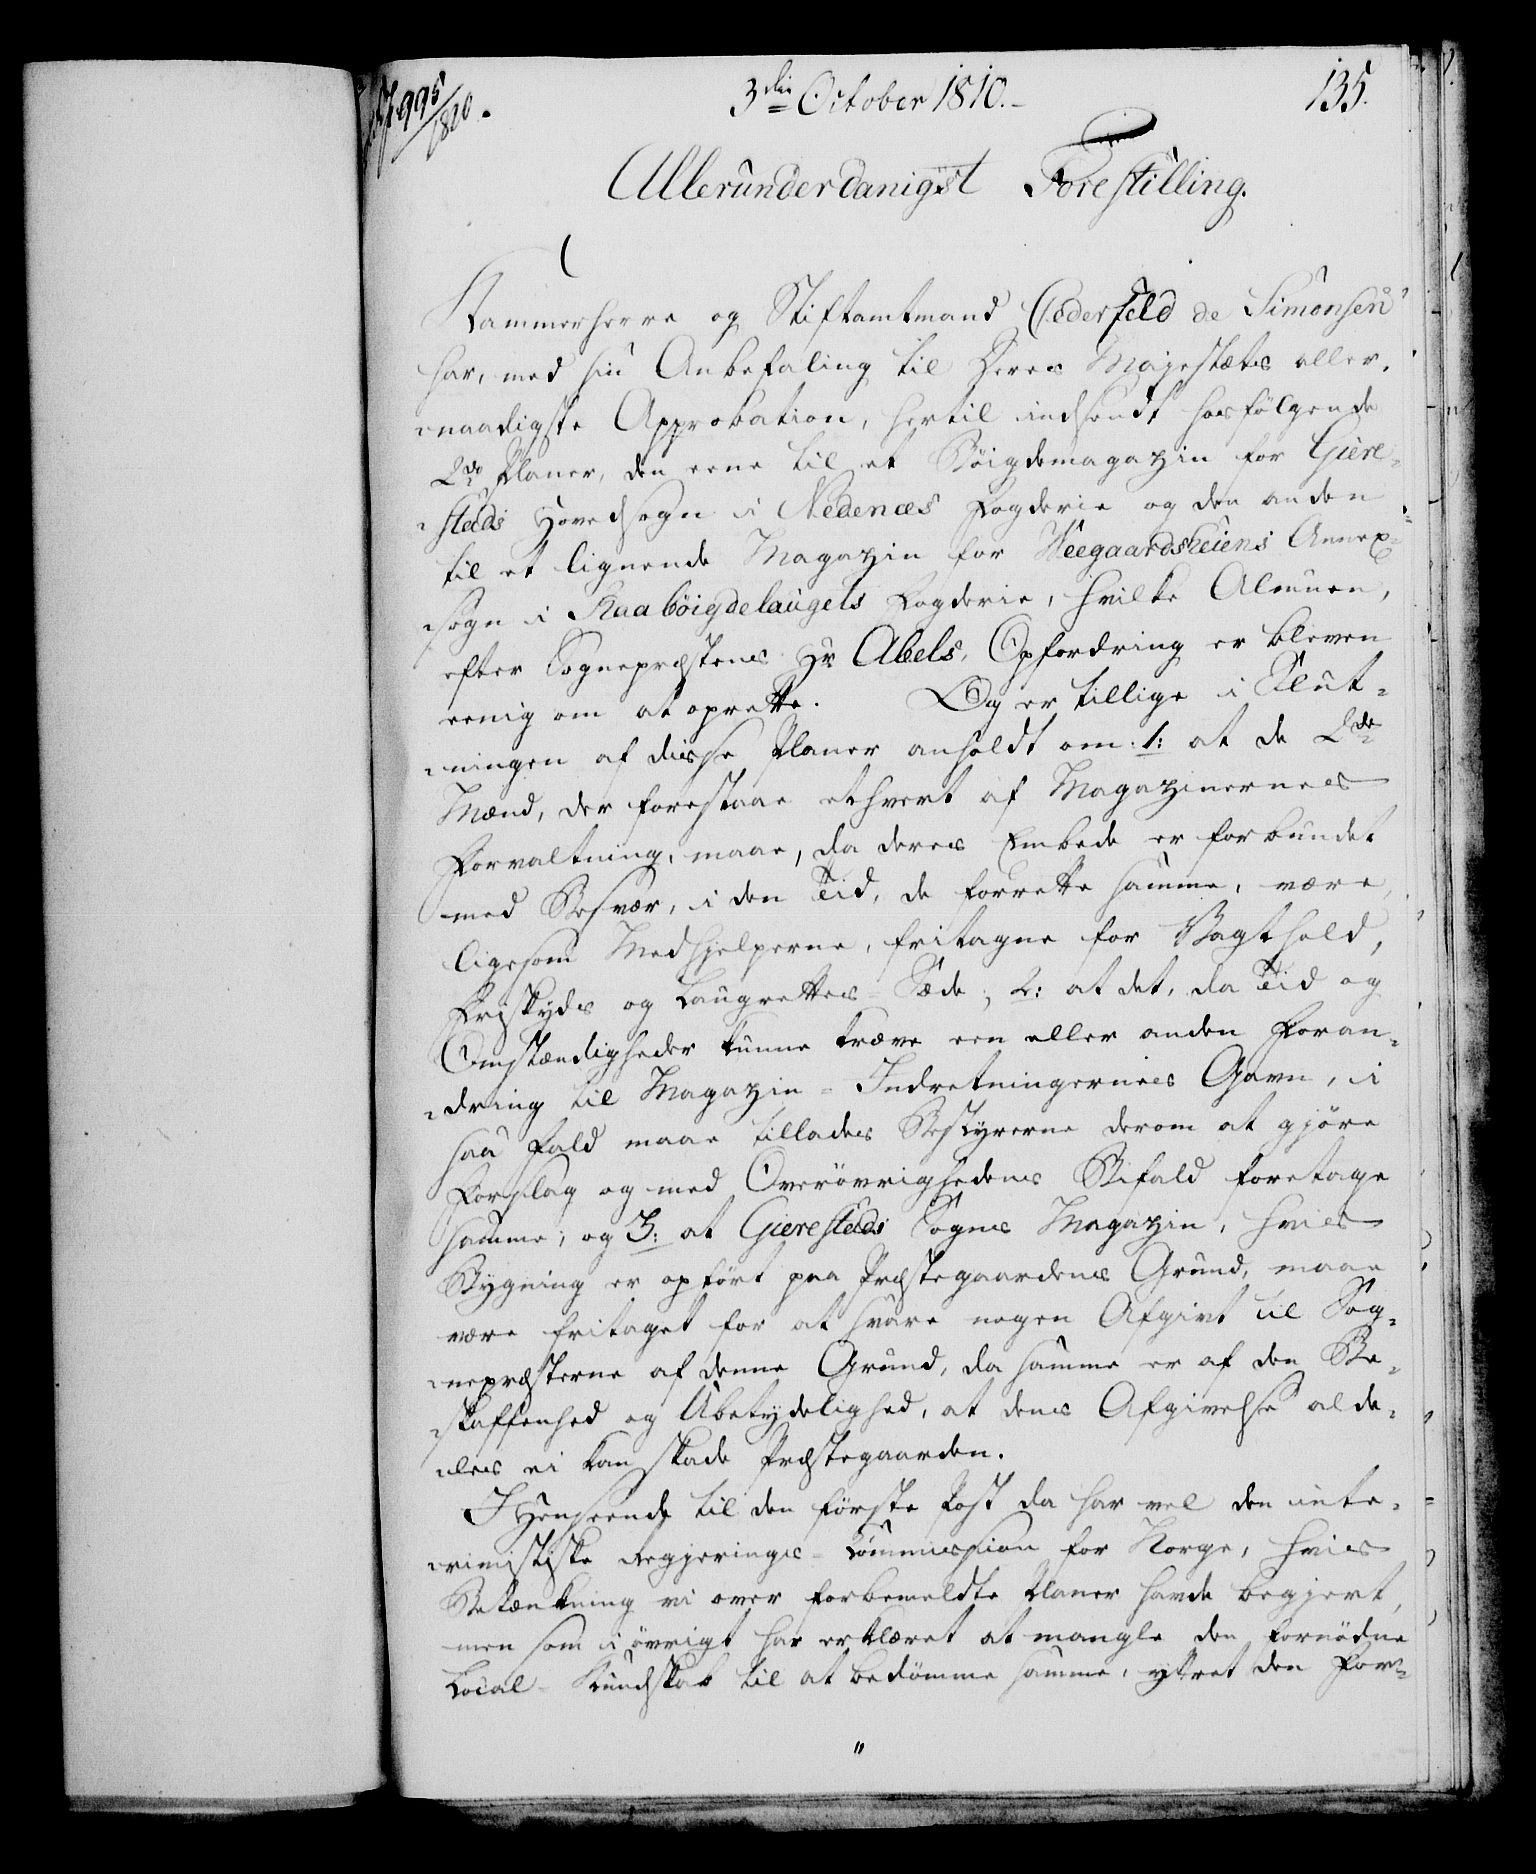 995/1810.
3die October 1810.-
135.
Allerunderdanigst Forestilling.
Kammerherre og Stiftamtmand Cederfeld de Simonsen
har, med sin Anbefaling til Deres Majestæts aller-
naadigste Approbation, hertil indsendt hosfölgende
2de Planer, den eene til et Böigdemagazin for Giere-
steds Hovedsogn i Nedenæs Fogderie og den anden
til et lignende Magazin for Weegaardsheiens Annex-
sogn i Raaböigdelaugets Fogderie, hvilke Almuen,
efter Sognepræstens Hr Abels, Opfordring er bleven
eenig om at oprette. Og er tillige i Slut-
ningen af disse Planer anholdt om: 1: at de 2de
Mænd, der forestaae ethvert af Magazinernes
Forvaltning, maae, da deres Embede er forbundet
med Besvær, i den Tid, de forrette samme, være,
ligesom Medhjelperne, fritagne for Vagthold,
Friskyds og Laugrettes-Sæde; 2: at det, da Tid og
Omstændigheder kunne kræve een eller anden Foran-
dring til Magazin-Indretningernes Gavn, i
saa Fald maae tillades Bestyrerne derom at gjöre
Forslag og med Overövrighedens Bifald foretage
samme; og 3: at Gieresteds Sogns Magazin, hvis
Bygning er opfört paa Præstegaardens Grund, maae
være fritaget for at svare nogen Afgivt til Sog-
nepræsterne af denne Grund, da samme er af den Be-
skaffenhed og Ubetydelighed, at dens Afgivelse alde-
eles ei kan skade Præstegaarden.
I Henseende til den förste Post da har vel den inte-
rimistiske Regjerings-Commission for Norge, hvis
Betænkning vi over forbemeldte Planer havde begjert,
men som i övrigt har erklæret at mangle den fornödne
Local-Kundskab til at bedömme samme, yttret den For-
"